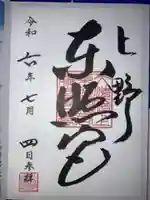 上野
東照宮
令和六年七月
四日参拝